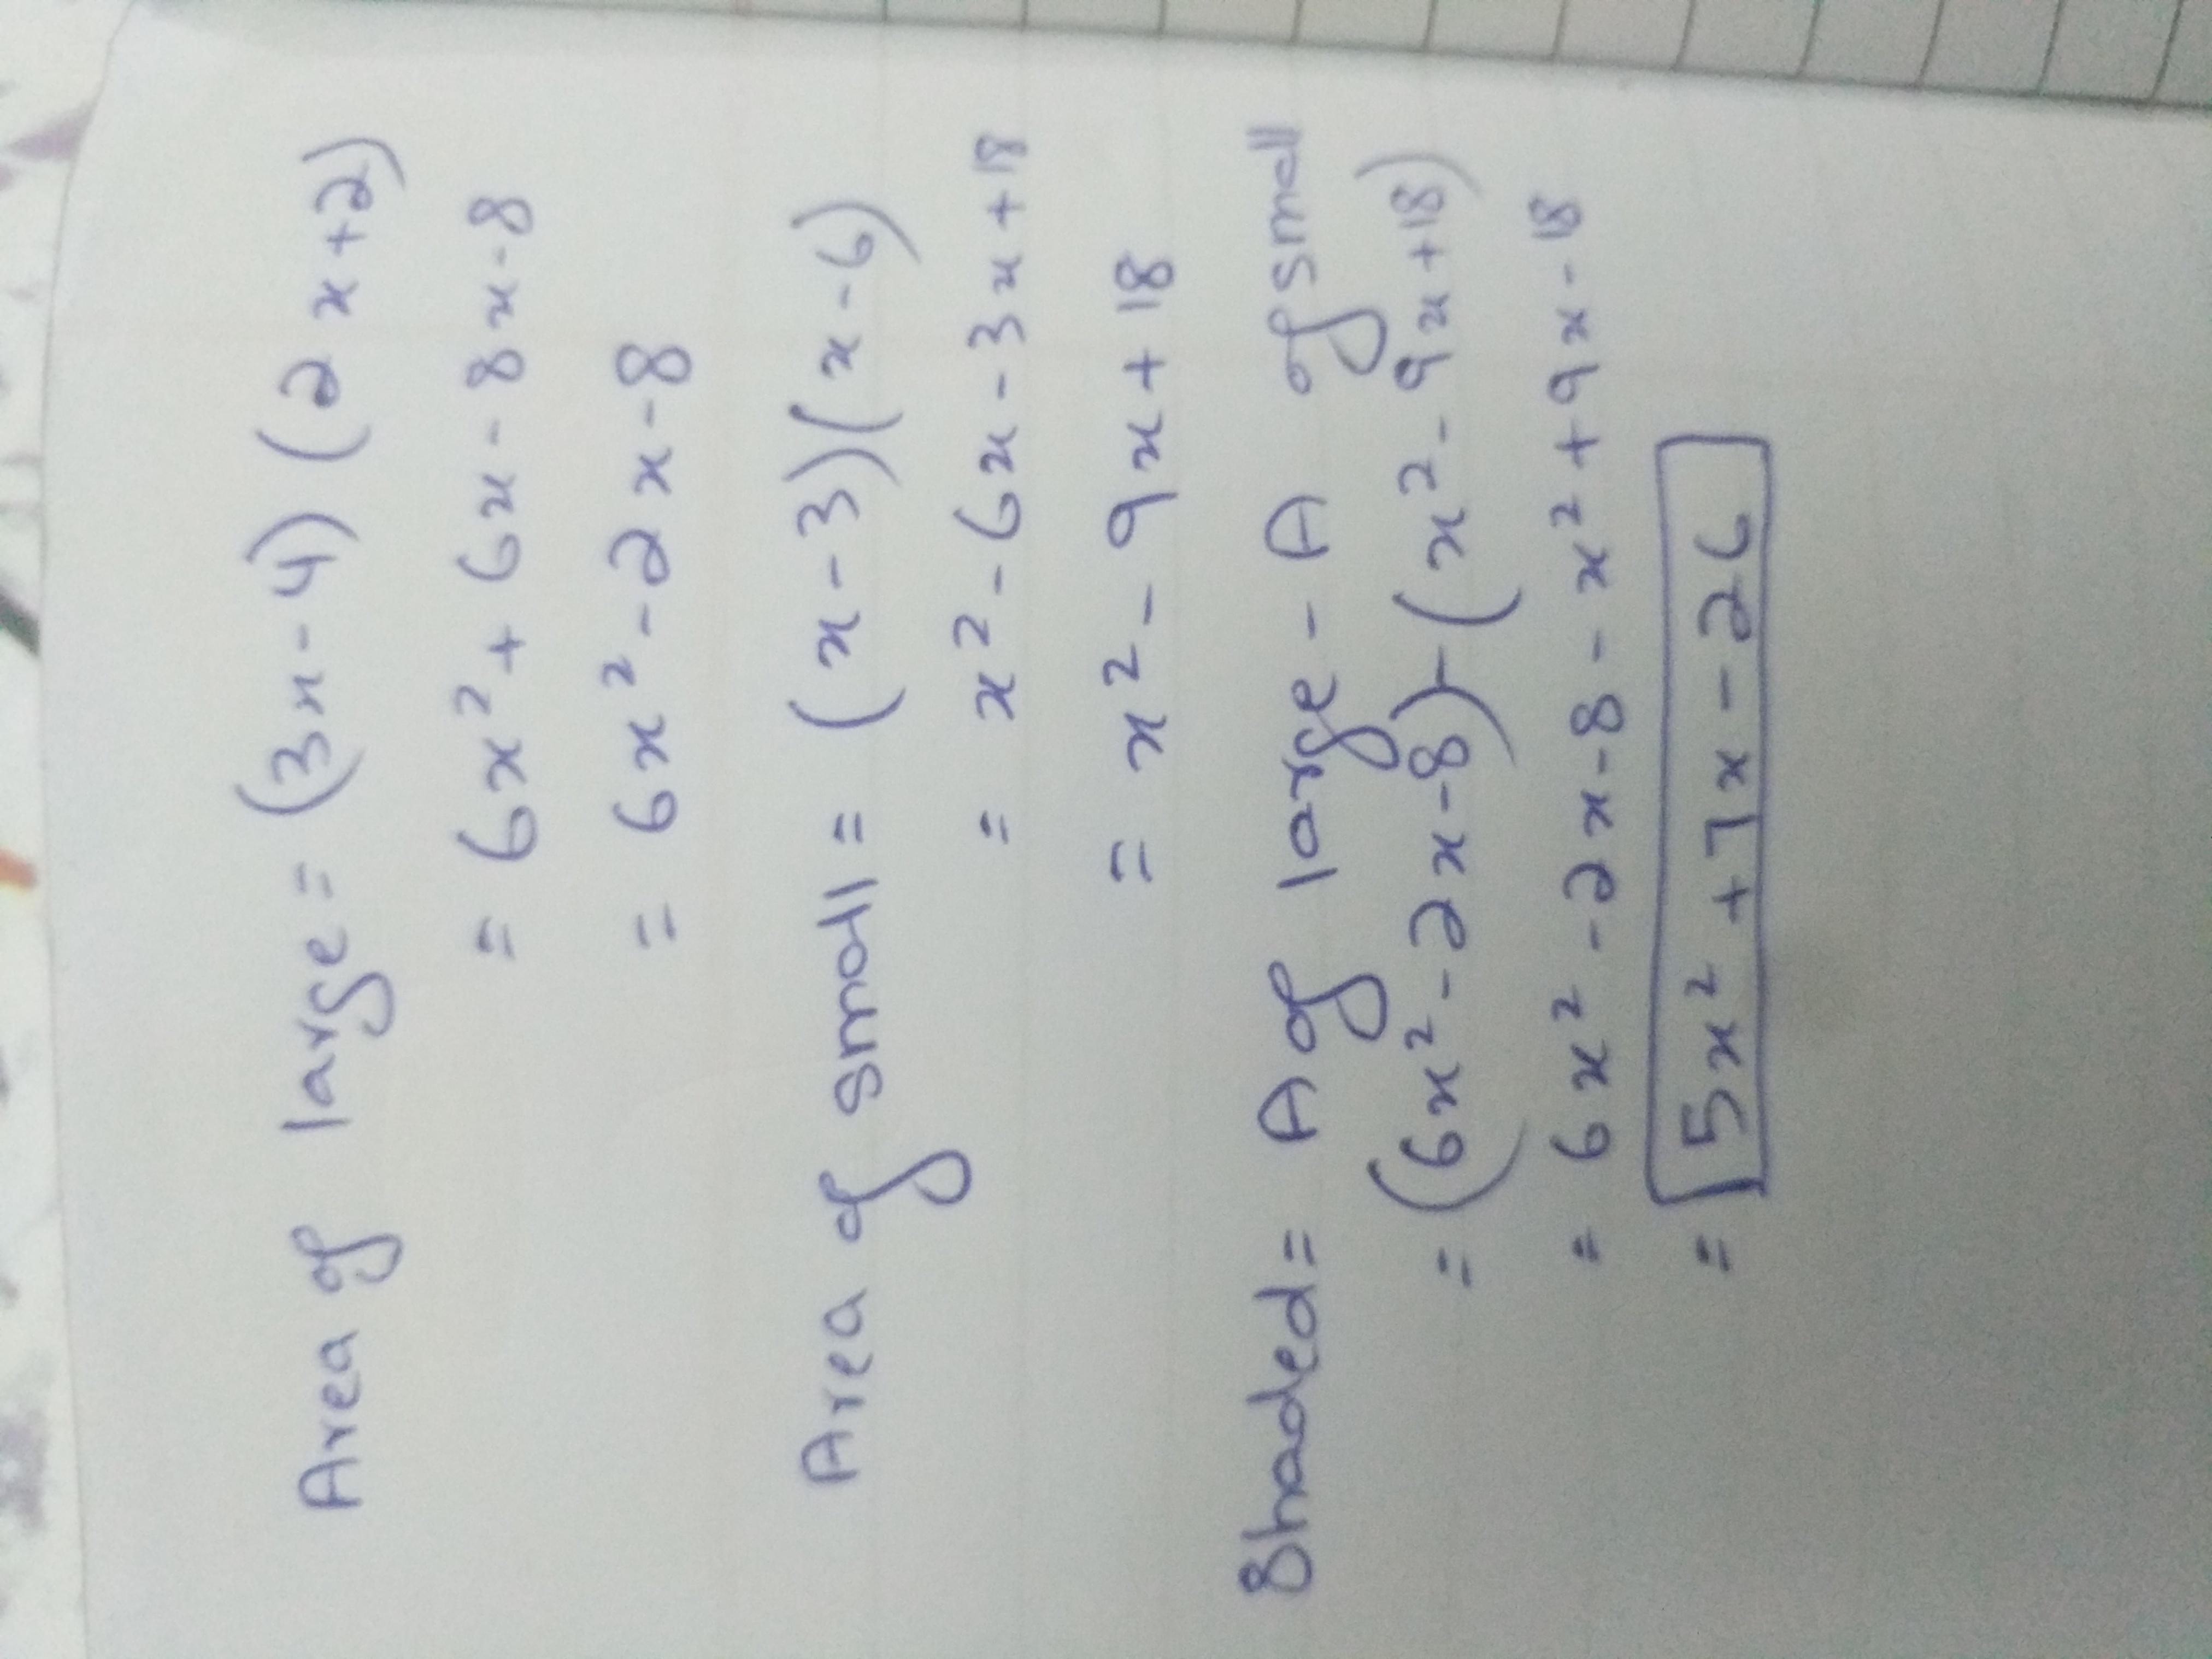 Area of large = (3x-4) (2x+2)
= 6x² + 6x - 8x - 8
= 6x² - 2x - 8
Area of small = (x-3)(x-6)
= x² - 6x - 3x + 18
= x² - 9x + 18
Shaded = A of large - A of small
= (6x² - 2x - 8) - (x² - 9x + 18)
= 6x² - 2x - 8 - x² + 9x - 18
= 5x² + 7x - 26